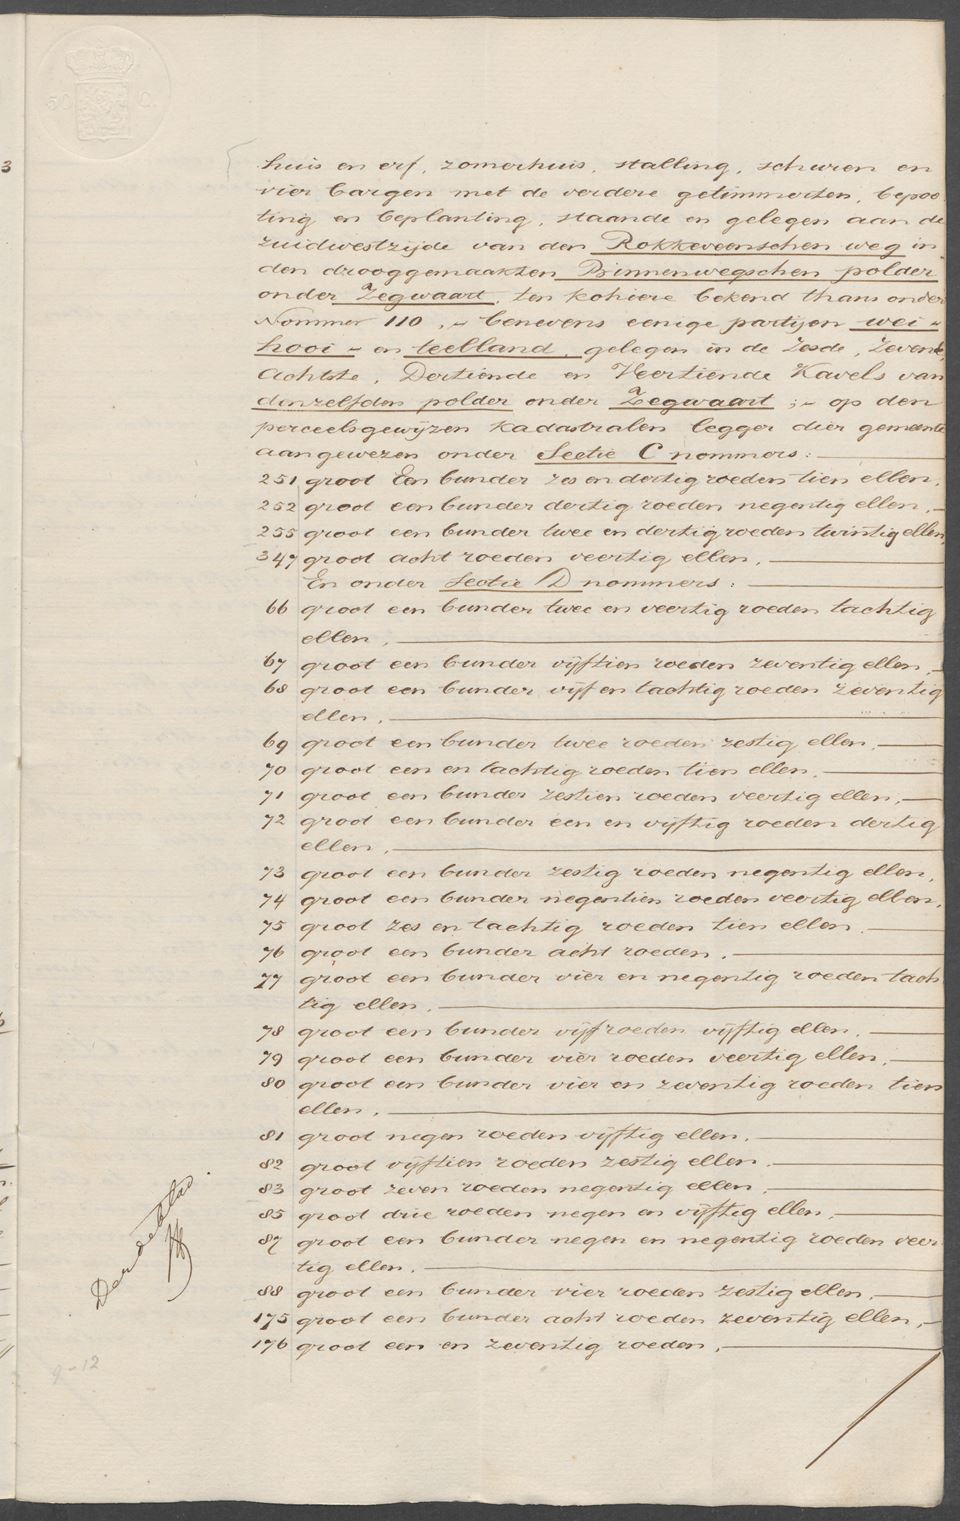 50 C.
3
huis en erf, zomerhuis, stalling, schuren en
vier bargen met de verdere getimmerten, bepoo-
ting en beplanting, staande en gelegen aan de
zuidwestzijde van den Rokkeveenschen weg in
den drooggemaakten Binnenwegschen polder
onder Zegwaart, ten kohiere bekend thans onder
Nommer 110, - benevens eenige partijen wei-
hooi- en teelland, gelegen in de Zesde, Zevende,
Achtste, Dertiende en Veertiende Kavels van
denzelfden polder onder Zegwaart; - op den
perceelsgewijzen kadastralen legger dier gemeente
aangewezen onder Sectie C nommers:
251 groot Een bunder zes en dertig roeden tien ellen,
252 groot een bunder dertig roeden negentig ellen,
255 groot een bunder twee en dertig roeden twintig ellen,
347 groot acht roeden veertig ellen,
En onder Sectie D nommers:
66 groot een bunder twee en veertig roeden tachtig
ellen,
67 groot een bunder vijftien roeden zeventig ellen,
68 groot een bunder vijf en tachtig roeden zeventig
ellen,
69 groot een bunder twee roeden zestig ellen,
70 groot een en tachtig roeden tien ellen,
71 groot een bunder zestien roeden veertig ellen,
72 groot een bunder een en vijftig roeden dertig
ellen,
73 groot een bunder zestig roeden negentig ellen,
74 groot een bunder negentien roeden veertig ellen,
75 groot zes en tachtig roeden tien ellen,
76 groot een bunder acht roeden,
77 groot een bunder vier en negentig roeden tach-
tig ellen,
78 groot een bunder vijf roeden vijftig ellen,
79 groot een bunder vier roeden veertig ellen,
80 groot een bunder vier en zeventig roeden tien
ellen,
81 groot negen roeden vijftig ellen,
82 groot vijftien roeden zestig ellen,
83 groot zeven roeden negentig ellen,
85 groot drie roeden negen en vijftig ellen,
87 groot een bunder negen en negentig roeden veer-
tig ellen,
88 groot een bunder vier roeden zestig ellen,
175 groot een bunder acht roeden zeventig ellen,
176 groot een en zeventig roeden,
Derdeblad.
9-12